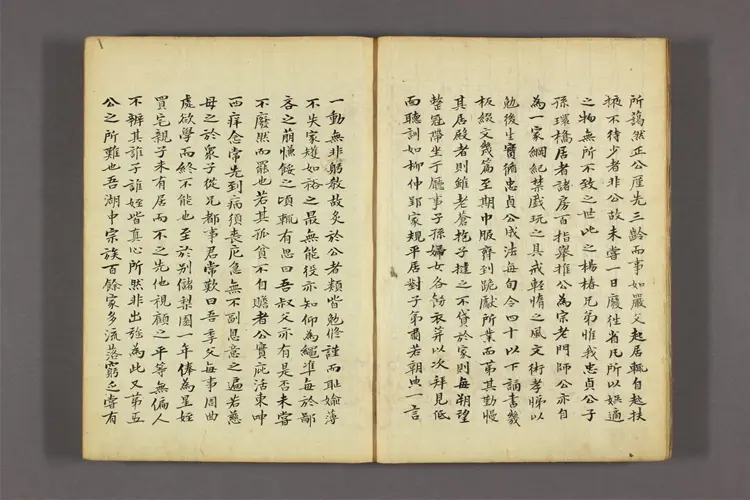 所謁然正公雖先三齡而事如嚴父起居輒自起扶
掖不待少者非公故未嘗一日廢往省凡所以娛適
之物無所不致之世比之楊椿兄弟惟我忠貞公子
孫環橋居者諸房百指舉推公為宗老門師公亦自
為一家綱紀禁戲玩之具戒輕惰之風文術孝悌以
勉後生實循忠貞公成法每旬令四十以下誦書幾
板綴文幾篇至期巾服齊到跪獻所業而第其勤慢
其居殿者則雖老蒼抱子撻之不貸於家則每朔望
整冠帶坐于廳事子孫婦女各飭衣笄以次拜見低
而聽訓如柳仲郢家規平居對子弟肅若朝典一言
一動無非躬教故炙於公者類皆勉修謹而恥婾薄
不失家矩如裕之最無能役亦知仰為繩準每於鄙
吝之萌慊餒之頃輒有思曰吾叔父亦有是否未嘗
不廢然而罷也若其孤貧不自贍者公實庇活東呻
西痒念常先到病須喪庀急無不副恩意之遍若慈
母之於衆子從兄都事君常歎曰吾季父每事周曲
處欲學而終不能也至於別儲梨園一年俸為呈姪
買宅親子未有居而不之先他視顧之平等無偏人
不辨其誰子誰姪皆真心所然非出強為此又第五
公之所難也吾湖中宗族百餘家多流落窮乏嘗有